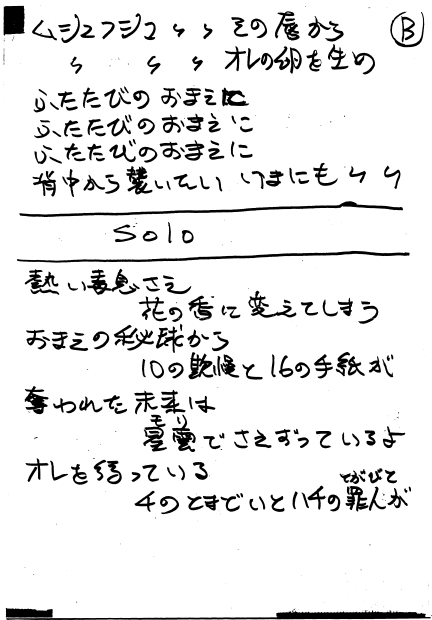 ムシュフシュ 〃 〃 その唇から Ⓑ
〃 〃 〃 オレの卵を生め
ふたたびのおまえに
ふたたびのおまえに
ふたたびのおまえに
背中から襲いたい いまにも 〃 〃
Solo
熱い毒息さえ
花の香に変えてしまう
おまえの秘球から
10の 慢と16の手紙が
奪われた未来は
モリ
星雲でさえずっているよ
オレを待っている
とがびと
4のとまどいとハチの罪人が